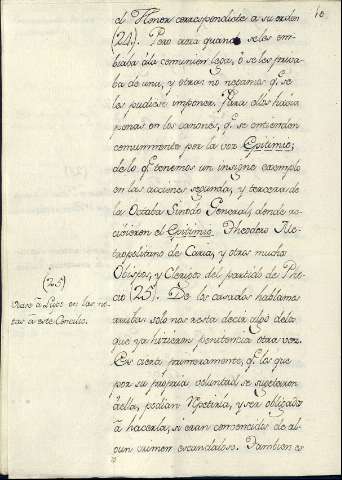 10
el Honor correspondiente a su orden
(24.) Pero aora quando se les em-
biaba á la comunion lega, ó se les priva-
ba de una, y otra; no negamos q.e se
les pudiese imponer. Para ellos havia
penas en los canones, q.e se entienden
comunmente por la voz Epitimio;
de lo q.e tenemos un insigne exemplo
en las acciones segunda, y tercera de
la Octaba Sinodo General, donde re-
civieron el Epitimio Theodoro Me-
tropolitano de Caria, y otros muchos
Obispos, y Clerigos del partido de Pho-
cio (25). De los casados hablamos
arriba: solo nos resta decir algo de los
que ya hicieron penitencia otra vez.
Es cierto primeramente, q.e los que
por su propria voluntad se sugetaron
á ella, podian repetirla, y ser obligados
á hacerla, si eran convencidos de al-
gun crimen escandaloso. Tambien es
(25)
Vease á Lupo en las no-
tas á este Concilio.